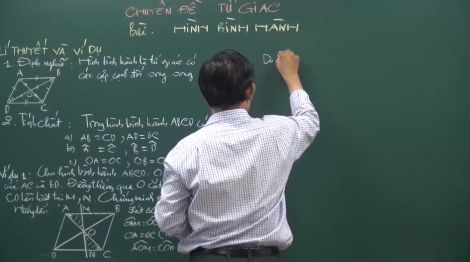 CHUYÊN ĐỀ TỨ GIÁC
Bài. HÌNH BÌNH HÀNH
LÍ THUYẾT VÀ VÍ DỤ
1. Định nghĩa: Hình bình hành là tứ giác có
các cặp cạnh đối song song
A B
D C
2. Tính chất: Trong hình bình hành ABCD
a) AB = CD, AD = BC
b) Â = Ĉ, B̂ = D̂
c) OA = OC, OB =
Ví dụ 1: Cho hình bình hành ABCD.
của AC và BD. Đường thẳng qua O cắt
CD lần lượt tại M, N. Chứng minh
A M B
Xét
OA = OC
D N C